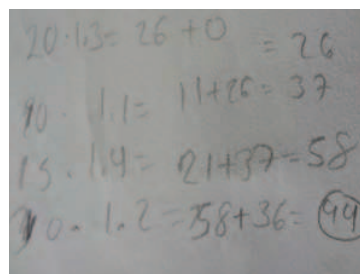 20·1.3= 26 +0 = 26
10· 1.1= 11+26= 37
15 · 1.4= 21+37=58
30· 1.2=58+36= 94